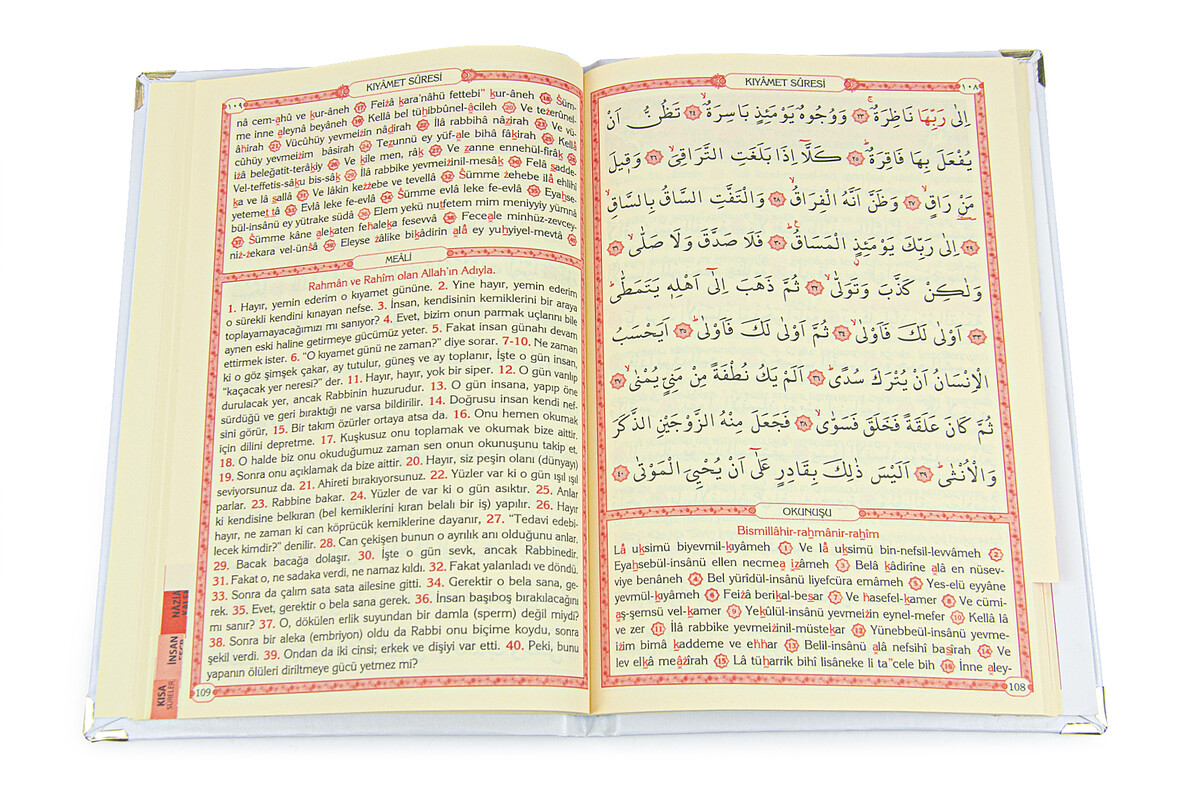 KIYÂMET SÛRESİ
١٠٨
اِلٰى رَبِّهَا نَاظِرَةٌۚ ﴿٢٣﴾ وَوُجُوهٌ يَوْمَئِذٍ بَاسِرَةٌۙ ﴿٢٤﴾ تَظُنُّ اَنْ
يُفْعَلَ بِهَا فَاقِرَةٌۜ ﴿٢٥﴾ كَلَّٓا اِذَا بَلَغَتِ التَّرَاقِيَۙ ﴿٢٦﴾ وَق۪يلَ
مَنْ رَاقٍۙ ﴿٢٧﴾ وَظَنَّ اَنَّهُ الْفِرَاقُۙ ﴿٢٨﴾ وَالْتَفَّتِ السَّاقُ بِالسَّاقِۙ
﴿٢٩﴾ اِلٰى رَبِّكَ يَوْمَئِذٍ الْمَسَاقُۜ ﴿٣٠﴾ فَلَا صَدَّقَ وَلَا صَلّٰىۙ ﴿٣١﴾
وَلٰكِنْ كَذَّبَ وَتَوَلّٰىۙ ﴿٣٢﴾ ثُمَّ ذَهَبَ اِلٰٓى اَهْلِه۪ يَتَمَطّٰىۜ
﴿٣٣﴾ اَوْلٰى لَكَ فَاَوْلٰىۙ ﴿٣٤﴾ ثُمَّ اَوْلٰى لَكَ فَاَوْلٰىۜ ﴿٣٥﴾ اَيَحْسَبُ
الْاِنْسَانُ اَنْ يُتْرَكَ سُدًىۜ ﴿٣٦﴾ اَلَمْ يَكُ نُطْفَةً مِنْ مَنِيٍّ يُمْنٰىۙ ﴿٣٧﴾
ثُمَّ كَانَ عَلَقَةً فَخَلَقَ فَسَوّٰىۙ ﴿٣٨﴾ فَجَعَلَ مِنْهُ الزَّوْجَيْنِ الذَّكَرَ
وَالْاُنْثٰىۜ ﴿٣٩﴾ اَلَيْسَ ذٰلِكَ بِقَادِرٍ عَلٰٓى اَنْ يُحْيِيَ الْمَوْتٰى ﴿٤٠﴾
OKUNUŞU
Bismillâhir-rahmânir-rahîm
Lâ uksimü biyevmil-kıyâmeh 1 Ve lâ uksimü bin-nefsil-levvâmeh 2
Eyahsebül-insânü ellen necmea izâmeh 3 Belâ kâdirîne alâ en nüsev-
viye benâneh 4 Bel yürîdül-insânü liyefcüra emâmeh 5 Yes-elü eyyâne
yevmül-kıyâmeh 6 Feizâ berikal-besar 7 Ve hasefel-kamer 8 Ve cümi-
aş-şemsü vel-kamer 9 Yekûlül-insânü yevmeizin eynel-mefer 10 Kellâ lâ
ve zer 11 İlâ rabbike yevmeizinil-müstekar 12 Yünebbeül-insânü yevme-
izim bimâ kaddeme ve ehhar 13 Belil-insânü alâ nefsihî basîrah 14 Ve
lev elkâ meâzîrah 15 Lâ tüharrik bihî lisâneke li ta"cele bih 16 İnne aley-
108
١٠٩
KIYÂMET SÛRESİ
nâ cem-ahû ve kur-âneh 17 Feizâ kara'nâhü fettebi" kur-âneh 18 Süm-
me inne aleynâ beyâneh 19 Kellâ bel tühibbûnel-âcileh 20 Ve tezerûnel-
âhirah 21 Vücûhüy yevmeizin nâdirah 22 İlâ rabbihâ nâzirah 23 Ve vü-
cûhüy yevmeizim bâsirah 24 Tezunnü ey yüf-ale bihâ fâkirah 25 Kellâ
izâ beleğatit-terâkıy 26 Ve kîle men, râk 27 Ve zanne ennehül-firâk 28
Vel-teffetis-sâku bis-sâk 29 İlâ rabbike yevmeizinil-mesâk 30 Felâ sadde-
ka ve lâ sallâ 31 Ve lâkin kezzebe ve tevellâ 32 Sümme zehebe ilâ ehlihî
yetemettâ 33 Evlâ leke fe-evlâ 34 Sümme evlâ leke fe-evlâ 35 Eyahse-
bül-insânü ey yütrake südâ 36 Elem yekü nutfetem mim meniyyiy yümnâ
37 Sümme kâne alekaten fehaleka fesevvâ 38 Feceale minhüz-zevcey-
niz-zekara vel-ünsâ 39 Eleyse zâlike bikâdirin alâ ey yuhyiyel-mevtâ 40
MEÂLİ
Rahmân ve Rahîm olan Allah'ın Adıyla.
1. Hayır, yemin ederim o kıyamet gününe. 2. Yine hayır, yemin ederim
o sürekli kendini kınayan nefse. 3. İnsan, kendisinin kemiklerini bir araya
toplayamayacağımızı mı sanıyor? 4. Evet, bizim onun parmak uçlarını bile
aynen eski haline getirmeye gücümüz yeter. 5. Fakat insan günahı devam
ettirmek ister. 6. "O kıyamet günü ne zaman?" diye sorar. 7-10. Ne zaman
ki o göz şimşek çakar, ay tutulur, güneş ve ay toplanır, İşte o gün insan,
"kaçacak yer neresi?" der. 11. Hayır, hayır, yok bir siper. 12. O gün vanlıp
durulacak yer, ancak Rabbinin huzurudur. 13. O gün insana, yapıp öne
sürdüğü ve geri bıraktığı ne varsa bildirilir. 14. Doğrusu insan kendi nef-
sini görür, 15. Bir takım özürler ortaya atsa da. 16. Onu hemen okumak
için dilini depretme. 17. Kuşkusuz onu toplamak ve okumak bize aittir.
18. O halde biz onu okuduğumuz zaman sen onun okunuşunu takip et.
19. Sonra onu açıklamak da bize aittir. 20. Hayır, siz peşin olanı (dünyayı)
seviyorsunuz da. 21. Ahireti bırakıyorsunuz. 22. Yüzler var ki o gün ışıl ışıl
parlar. 23. Rabbine bakar. 24. Yüzler de var ki o gün asıktır. 25. Anlar
ki kendisine belkıran (bel kemiklerini kıran belalı bir iş) yapılır. 26. Hayır
hayır, ne zaman ki can köprücük kemiklerine dayanır, 27. "Tedavi edebi-
lecek kimdir?" denilir. 28. Can çekişen bunun o ayrılık anı olduğunu anlar.
29. Bacak bacağa dolaşır. 30. İşte o gün sevk, ancak Rabbinedir.
31. Fakat o, ne sadaka verdi, ne namaz kıldı. 32. Fakat yalanladı ve döndü.
33. Sonra da çalım sata sata ailesine gitti. 34. Gerektir o bela sana, ge-
rek. 35. Evet, gerektir o bela sana gerek. 36. İnsan başıboş bırakılacağını
mı sanır? 37. O, dökülen erlik suyundan bir damla (sperm) değil miydi?
38. Sonra bir aleka (embriyon) oldu da Rabbi onu biçime koydu, sonra
şekil verdi. 39. Ondan da iki cinsi; erkek ve dişiyi var etti. 40. Peki, bunu
yapanın ölüleri diriltmeye gücü yetmez mi?
109
İNSAN
KISA
SÛRELER